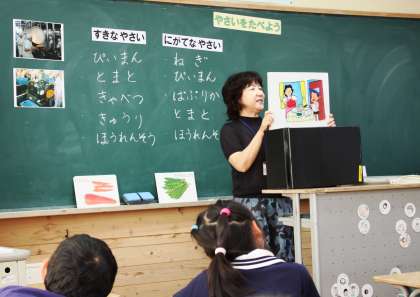 やさいをたべよう
すきなやさい
ぴいまん
とまと
きゃべつ
きゅうり
ほうれんそう
にがてなやさい
・ねぎ
・ぴいまん
・ぱぷりか
・とまと
・ほうれんそう